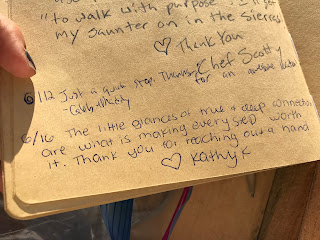 "to walk with purpose". I'll get
my saunter on in the Sierras
♡ Thank You
Chef Scotty
6/12 Just a quick stop. Thanks for an awesome
-Caleb
6/16 The little glances of true & deep connection
are what is making every step worth
it. Thank you for reaching out a hand
♡ Kathy K